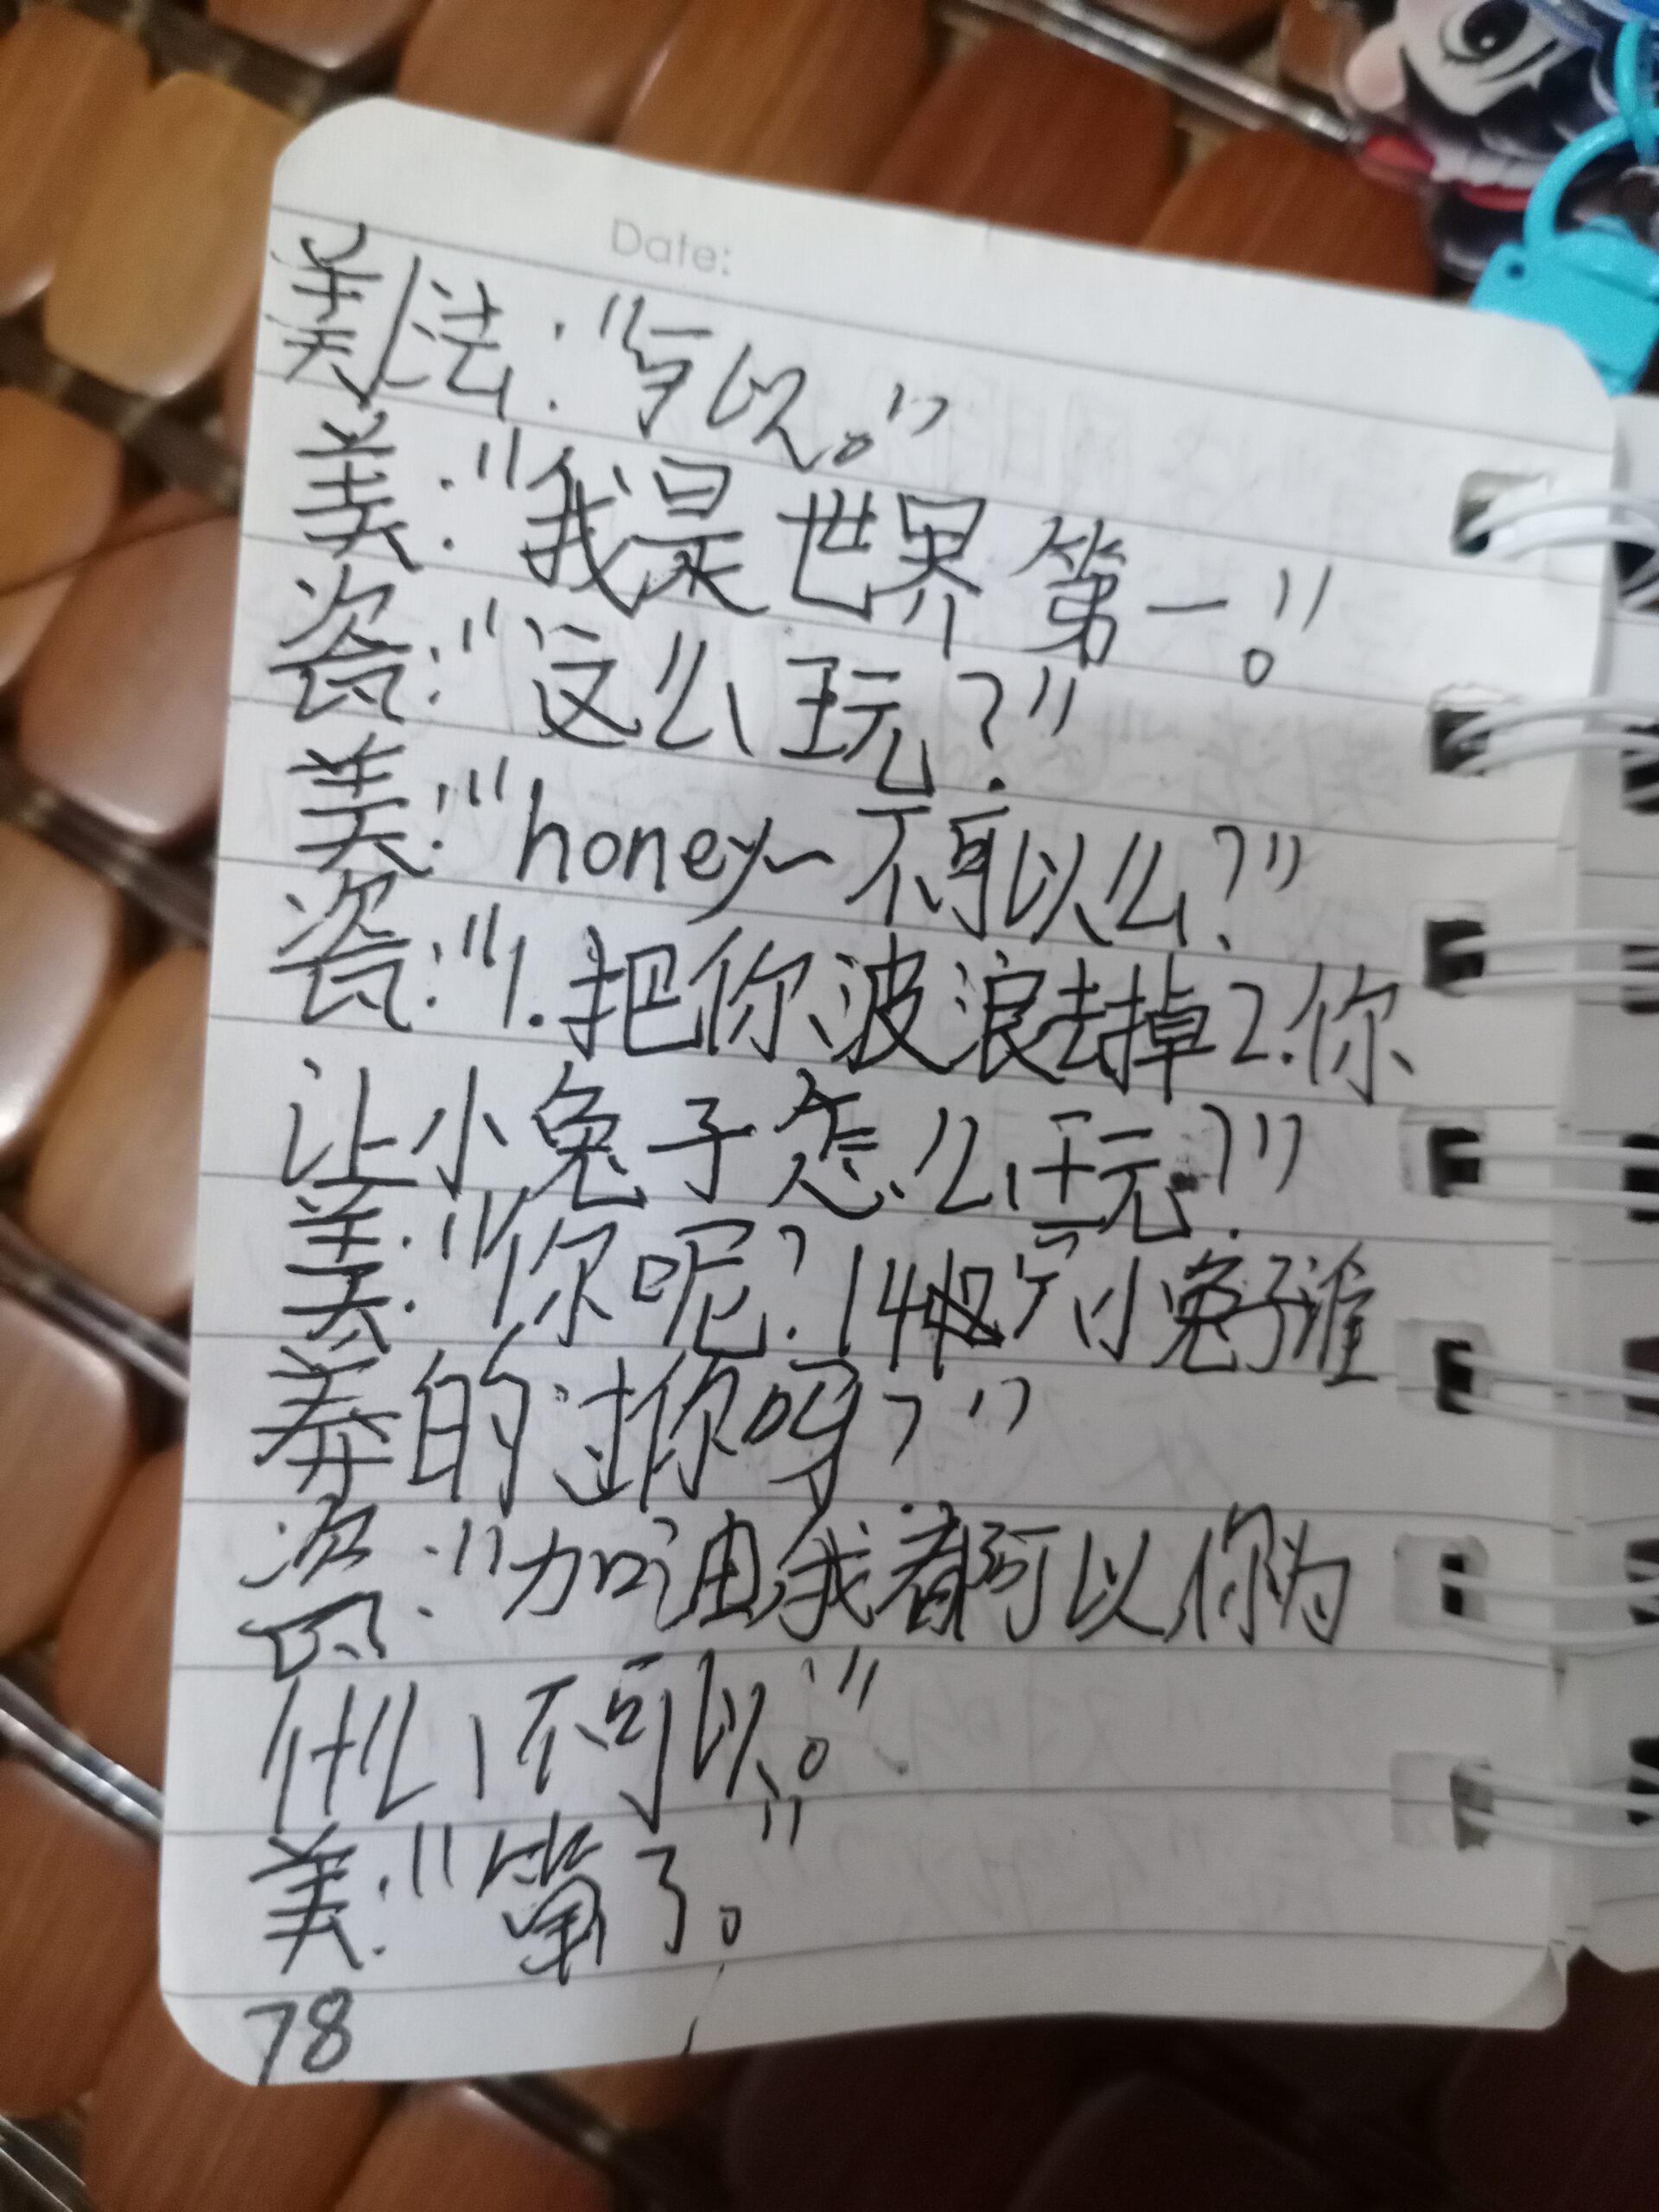 Date:
美/法:"可以。"
美:"我是世界第一。"
瓷:"这么玩?"
美:"honey~不可以么?"
瓷:"1.把你波浪去掉2.你
让小兔子怎么玩?"
美:"你呢?14岁小兔子谁
养的过你吗?"
瓷:"加油我都可以你为
什么不可以。"
美:"算了。"
78